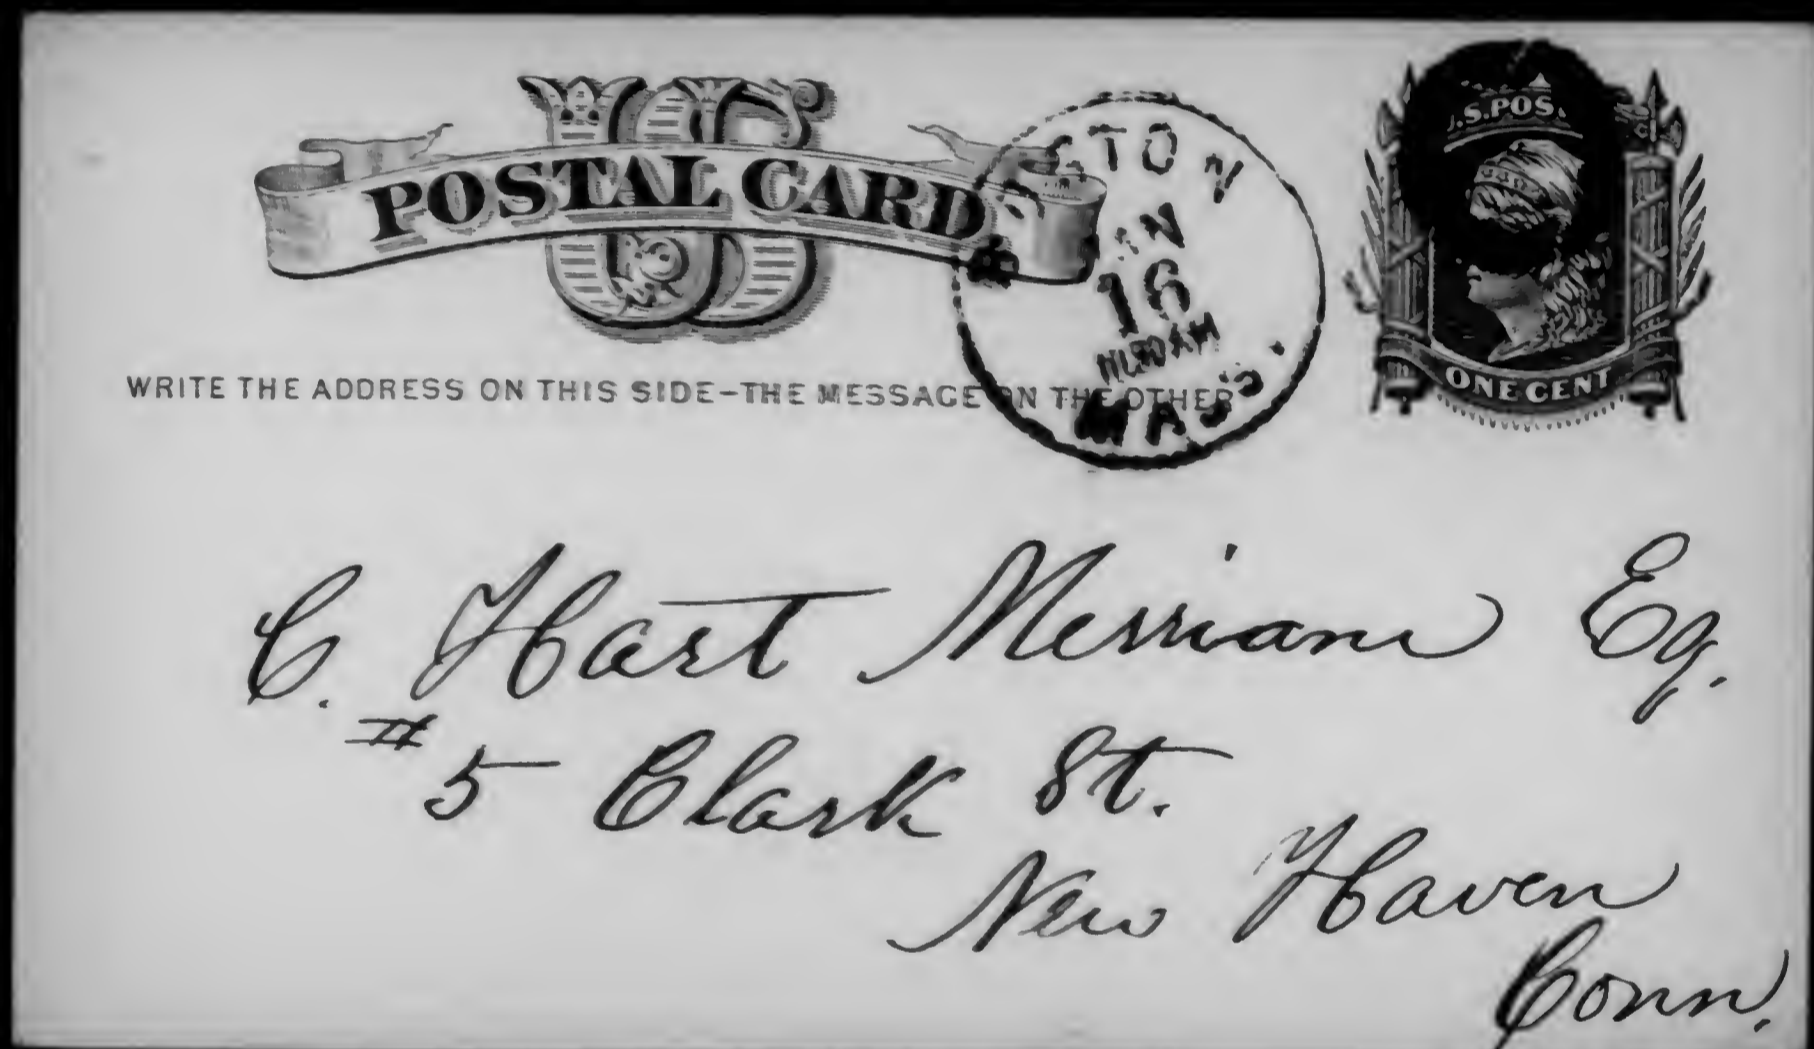 US
POSTAL CARD
U.S. POS.
ONE CENT
WRITE THE ADDRESS ON THIS SIDE-THE MESSAGE ON THE OTHER
16
MASS.
C. Hart Merriam Eq.
# 5 Clark St.
New Haven
Conn.